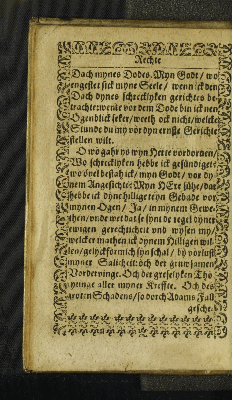 Rechte
Dach mynes Dodes. Myn Godt / wo
engestet sick myne Seele / wenn ick den
Dach dynes schrecklyken gerichtes be-
trachte: wente vor dem Dode bin ick nen
Ogenblick seker / weeth ock nicht / welcke
Stunde du my vör dyn ernste Gerichte
stellen wilt.
O wo gahr ys myn Herte vordorven /
Wo schrecklyken hebbe ick gesündiget
wo övel bestah ick / myn Godt / vor dy-
nem Angesichte: Myn HEre sühe / dar
hebbe ick dyne hillige teyn Gebade vor
mynen Ogen / Ja / in mynem Gewe-
then / unde wet dat se synt de regel dyner
ewigen gerechticheit und wysen my /
welcker mathen ick dynem Hilligen wil-
len / gelyckförmich syn schal / by vorlust
myner Salicheit: och der gruwsamen
Vordervinge. Och der greselyken Tho
ryttinge aller myner Kreffte. Och des
groten Schadens / so dorch Adams Fall
gesche-